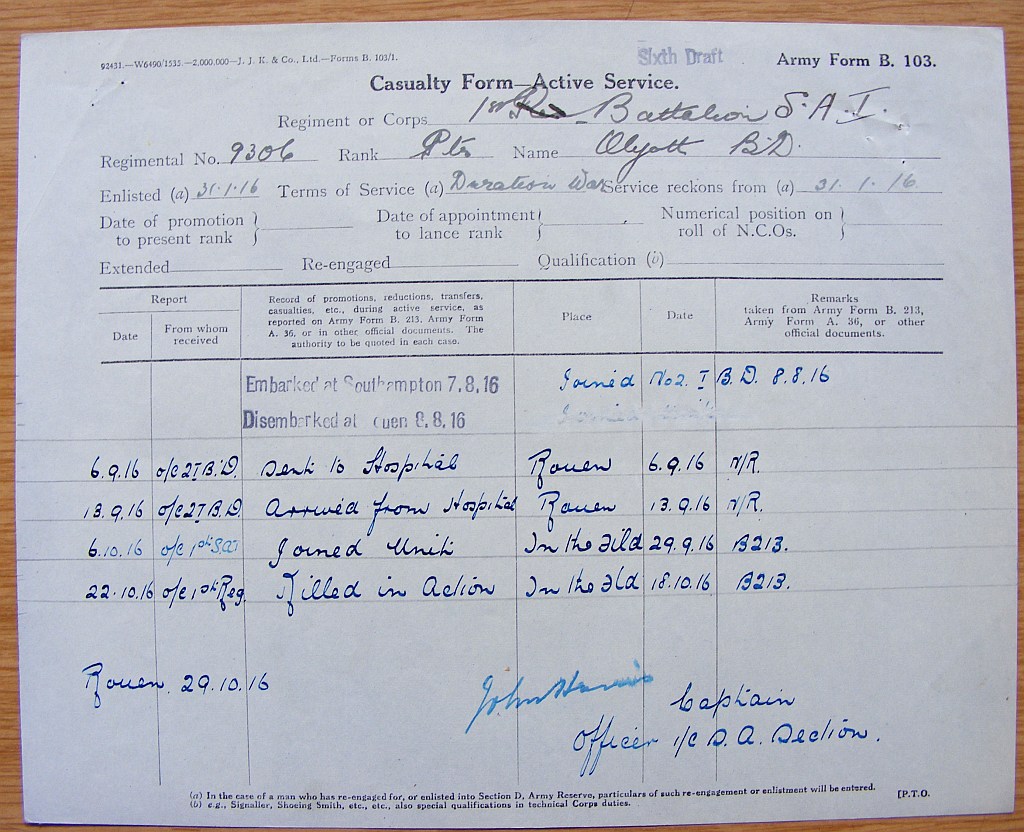 92431.—W6490/1535.—2,000,000—J. J. K. & Co., Ltd.—Forms B. 103/1.
Sixth Draft
Army Form B. 103.
Casualty Form—Active Service.
Regiment or Corps 1st Battalion S.A.I.
Regimental No. 9306 Rank Pte Name Olyott B.D.
Enlisted (a) 31.1.16 Terms of Service (a) Duration War Service reckons from (a) 31.1.16.
Date of promotion to present rank } Date of appointment to lance rank } Numerical position on roll of N.C.Os. }
Extended Re-engaged Qualification (b)
Report
Date
From whom received
Record of promotions, reductions, transfers,
casualties, etc., during active service, as
reported on Army Form B. 213, Army Form
A. 36, or in other official documents. The
authority to be quoted in each case.
Place
Date
Remarks
taken from Army Form B. 213,
Army Form A. 36, or other
official documents.
Embarked at Southampton 7.8.16 Joined No 2. I B.D. 8.8.16
Disembarked at ouen 8.8.16
6.9.16 o/c 2 I B.D. Sent to Hospital Rouen 6.9.16 N/R.
13.9.16 o/c 2 I B.D. Arrived from Hospital Rouen 13.9.16 N/R.
6.10.16 o/c 1st S.A.I Joined Unit In the Fild 29.9.16 B213.
22.10.16 o/c 1st Reg. Killed in Action In the Fld 18.10.16 B213.
Rouen. 29.10.16
John Harris Captain
Officer i/c S.A. Section.
(a) In the case of a man who has re-engaged for, or enlisted into Section D, Army Reserve, particulars of such re-engagement or enlistment will be entered.
(b) e.g., Signaller, Shoeing Smith, etc., etc., also special qualifications in technical Corps duties.
[P.T.O.